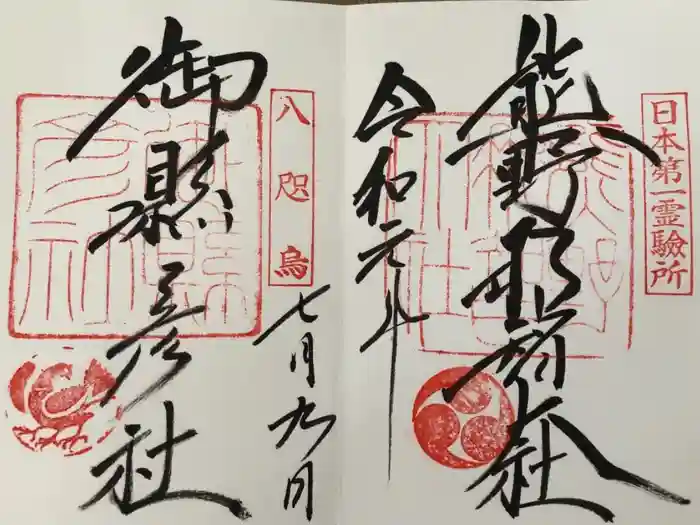 日本第一霊驗所
熊野那智大社
令和元年
八咫烏
七月九日
御縣彦社